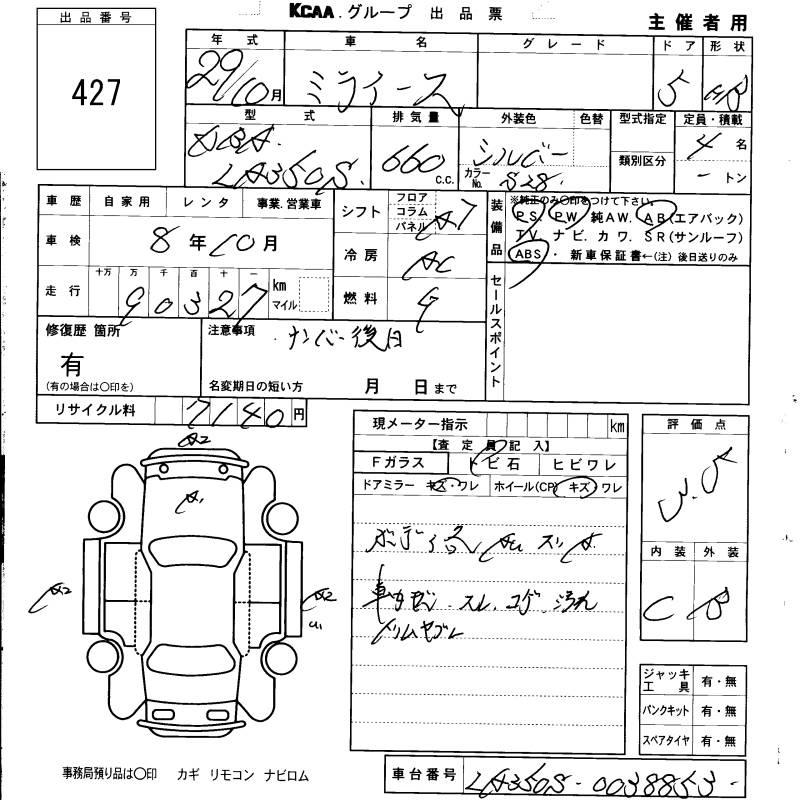 KCAA.グループ 出品票
主催者用
出品番号
427
年式 車名 グレード ドア 形状
29/10月 ミライース 5 HB
型式 排気量 外装色 色替 型式指定 定員・積載
DBA. LA350S. 660 C.C. シルバー 4名
カラーNo. S28. 類別区分 -トン
車歴 自家用 レンタ 事業.営業車
シフト フロア コラム パネル
装備品 ※純正のみ〇印をつけて下さい。
PS PW 純AW. AB(エアバック)
TV. ナビ. カワ. SR(サンルーフ)
ABS・ 新車保証書←(注)後日送りのみ
車検 8年10月
冷房 AC
走行 十万 万 千 百 十 一
90327 km マイル
燃料 G
セールスポイント
修復歴 箇所
有
(有の場合は〇印を)
注意事項
ナンバー後日
名変期日の短い方 月 日まで
リサイクル料 7140円
現メーター指示 km
【査定員記入】
Fガラス トビ石 ヒビワレ
ドアミラー キズ・ワレ ホイール(CP) キズ・ワレ
評価点
内装 外装
C B
A2
A1
A2
A2
U1
ボディ各 AU スリ
スレ. コゲ. 汚れ
ジャッキ工具 有・無
パンクキット 有・無
スペアタイヤ 有・無
事務局預り品は〇印 カギ リモコン ナビロム
車台番号 LA350S-0038853-